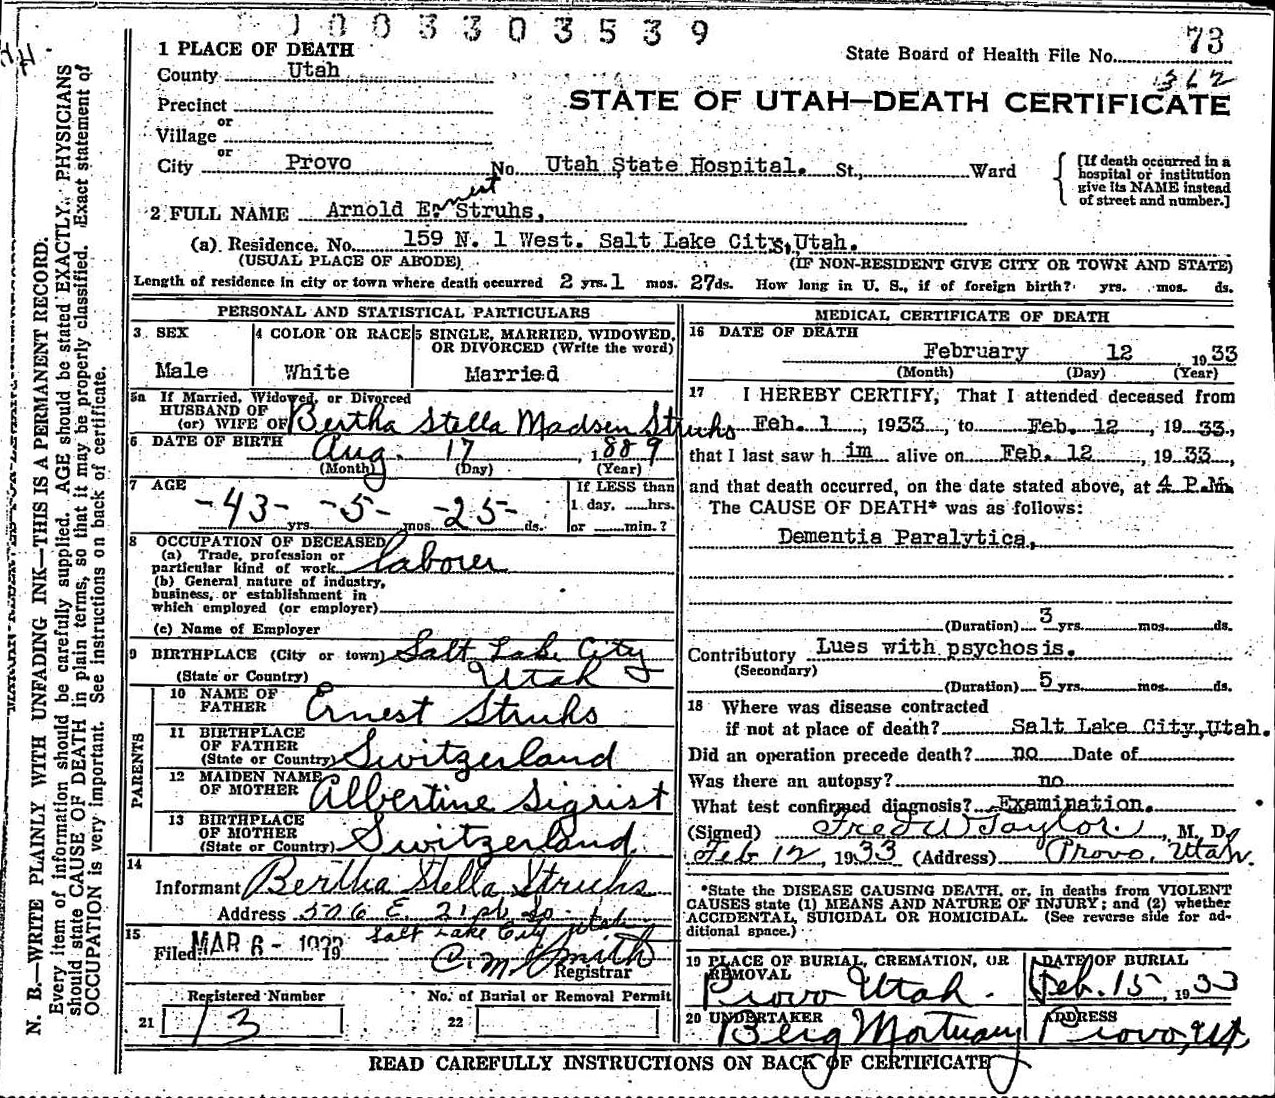 1003303539
1 PLACE OF DEATH
State Board of Health File No. 73
County Utah
362
STATE OF UTAH—DEATH CERTIFICATE
Precinct
or
Village
or
City Provo No. Utah State Hospital. St., Ward
[If death occurred in a hospital or institution give its NAME instead of street and number.]
2 FULL NAME Arnold Ernest Struhs,
(a) Residence. No. 159 N. 1 West. Salt Lake City, Utah.
(USUAL PLACE OF ABODE) (IF NON-RESIDENT GIVE CITY OR TOWN AND STATE)
Length of residence in city or town where death occurred 2 yrs. 1 mos. 27 ds. How long in U. S., if of foreign birth? yrs. mos. ds.
PERSONAL AND STATISTICAL PARTICULARS
3 SEX
Male
4 COLOR OR RACE
White
5 SINGLE, MARRIED, WIDOWED, OR DIVORCED (Write the word)
Married
5a If Married, Widowed, or Divorced
HUSBAND OF
(or) WIFE OF Bertha Stella Madsen Struhs
6 DATE OF BIRTH Aug. 17, 1889
(Month) (Day) (Year)
7 AGE
-43- -5- -25-
yrs. mos. ds.
If LESS than
1 day, hrs.
or min.?
8 OCCUPATION OF DECEASED
(a) Trade, profession or
particular kind of work Laborer
(b) General nature of industry,
business, or establishment in
which employed (or employer)
(c) Name of Employer
9 BIRTHPLACE (City or town) Salt Lake City
(State or Country) Utah
PARENTS
10 NAME OF
FATHER Ernest Struhs
11 BIRTHPLACE
OF FATHER
(State or Country) Switzerland
12 MAIDEN NAME
OF MOTHER Albertine Sigrist
13 BIRTHPLACE
OF MOTHER
(State or Country) Switzerland
14
Informant Bertha Stella Struhs
Address 576 E. 21st So.
Salt Lake City Utah
15
Filed MAR 6 - 1933 19 C. M. Smith
Registrar
Registered Number
21 13
No. of Burial or Removal Permit
22
MEDICAL CERTIFICATE OF DEATH
16 DATE OF DEATH
February 12 1933
(Month) (Day) (Year)
17 I HEREBY CERTIFY, That I attended deceased from
Feb. 1, 1933, to Feb. 12, 1933,
that I last saw him alive on Feb. 12, 1933,
and that death occurred, on the date stated above, at 4 P.M.
The CAUSE OF DEATH* was as follows:
Dementia Paralytica,
(Duration) 3 yrs. mos. ds.
Contributory Lues with psychosis.
(Secondary)
(Duration) 5 yrs. mos. ds.
18 Where was disease contracted
if not at place of death? Salt Lake City, Utah.
Did an operation precede death? no Date of
Was there an autopsy? no
What test confirmed diagnosis? Examination.
(Signed) Fred W Taylor, M. D.
Feb 12, 1933 (Address) Provo, Utah.
*State the DISEASE CAUSING DEATH, or, in deaths from VIOLENT
CAUSES state (1) MEANS AND NATURE OF INJURY; and (2) whether
ACCIDENTAL, SUICIDAL OR HOMICIDAL. (See reverse side for ad-
ditional space.)
19 PLACE OF BURIAL, CREMATION, OR
REMOVAL
Provo Utah.
DATE OF BURIAL
Feb. 15, 1933
20 UNDERTAKER
Berg Mortuary
ADDRESS
Provo, Ut.
READ CAREFULLY INSTRUCTIONS ON BACK OF CERTIFICATE
N. B.—WRITE PLAINLY WITH UNFADING INK—THIS IS A PERMANENT RECORD.
Every item of information should be carefully supplied. AGE should be stated EXACTLY. PHYSICIANS
should state CAUSE OF DEATH in plain terms, so that it may be properly classified. Exact statement of
OCCUPATION is very important. See instructions on back of certificate.